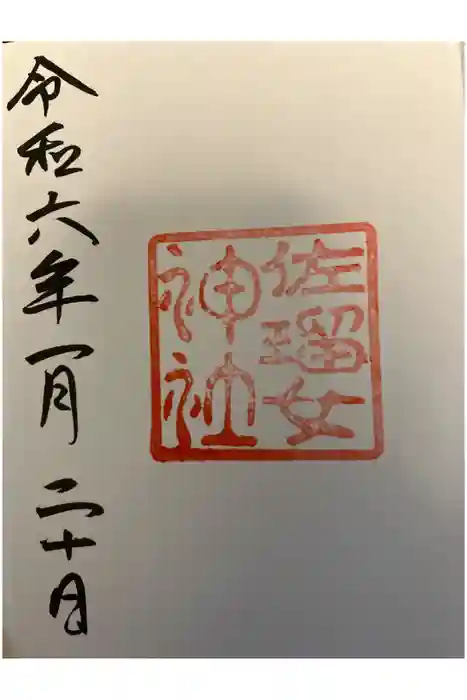 佐瑠女
神社
令和六年一月二十日